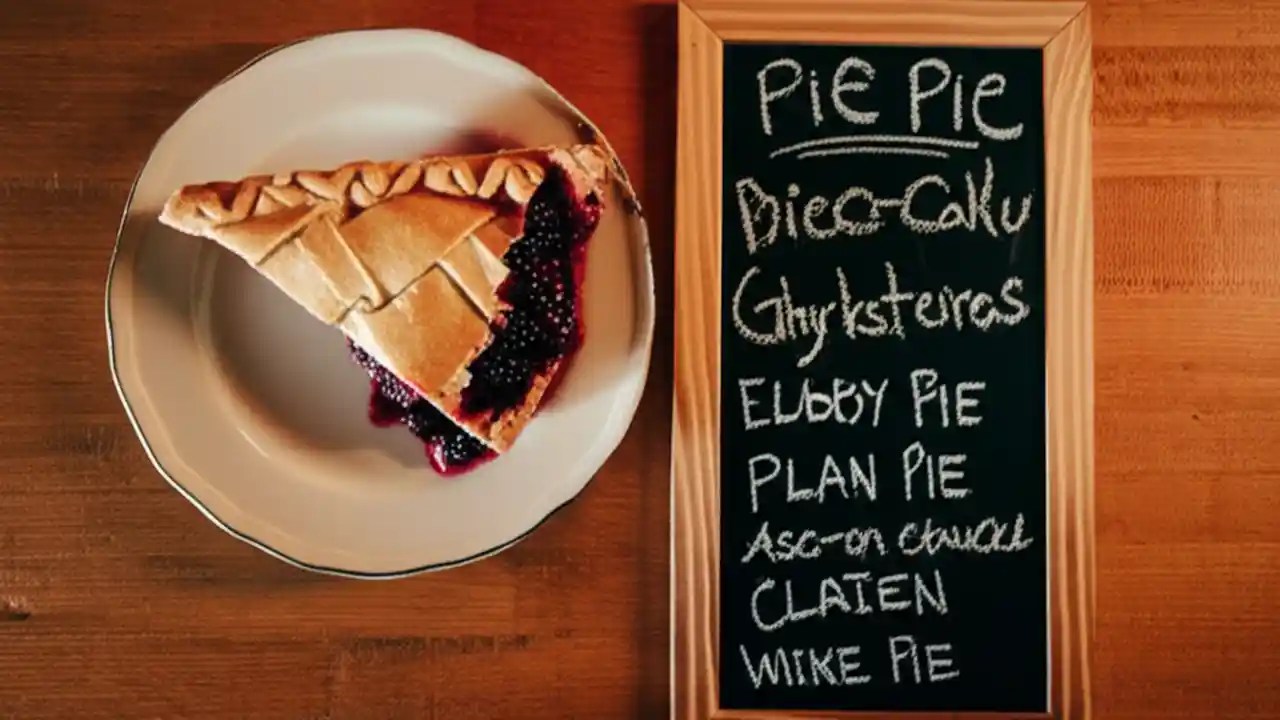 PiE Pie
Dieco-Calku
Ghyksteros
ELBBY PIE
PLAN PIE
Asc-on
CLATEN
WIKE PIE